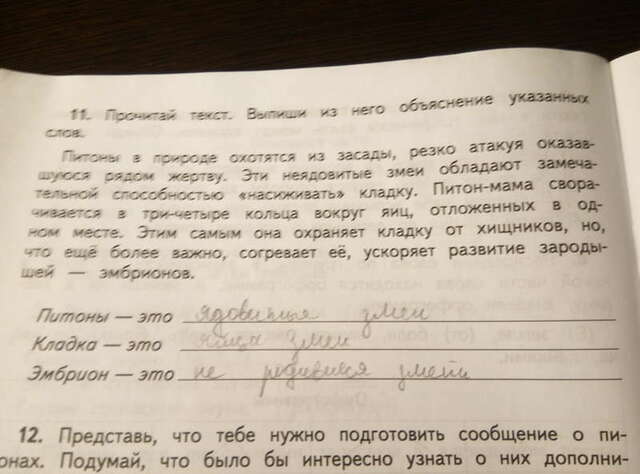 11. Прочитай текст. Выпиши из него объяснение указанных
слов.
Питоны в природе охотятся из засады, резко атакуя оказав-
шуюся рядом жертву. Эти неядовитые змеи обладают замеча-
тельной способностью «насиживать» кладку. Питон-мама свора-
чивается в три-четыре кольца вокруг яиц, отложенных в од-
ном месте. Этим самым она охраняет кладку от хищников, но,
что ещё более важно, согревает её, ускоряет развитие зароды-
шей — эмбрионов.
Питоны — это ядовитыя змеи
Кладка — это яйца змеи
Эмбрион — это не родившися змеи
12. Представь, что тебе нужно подготовить сообщение о пи-
онах. Подумай, что было бы интересно узнать о них дополни-